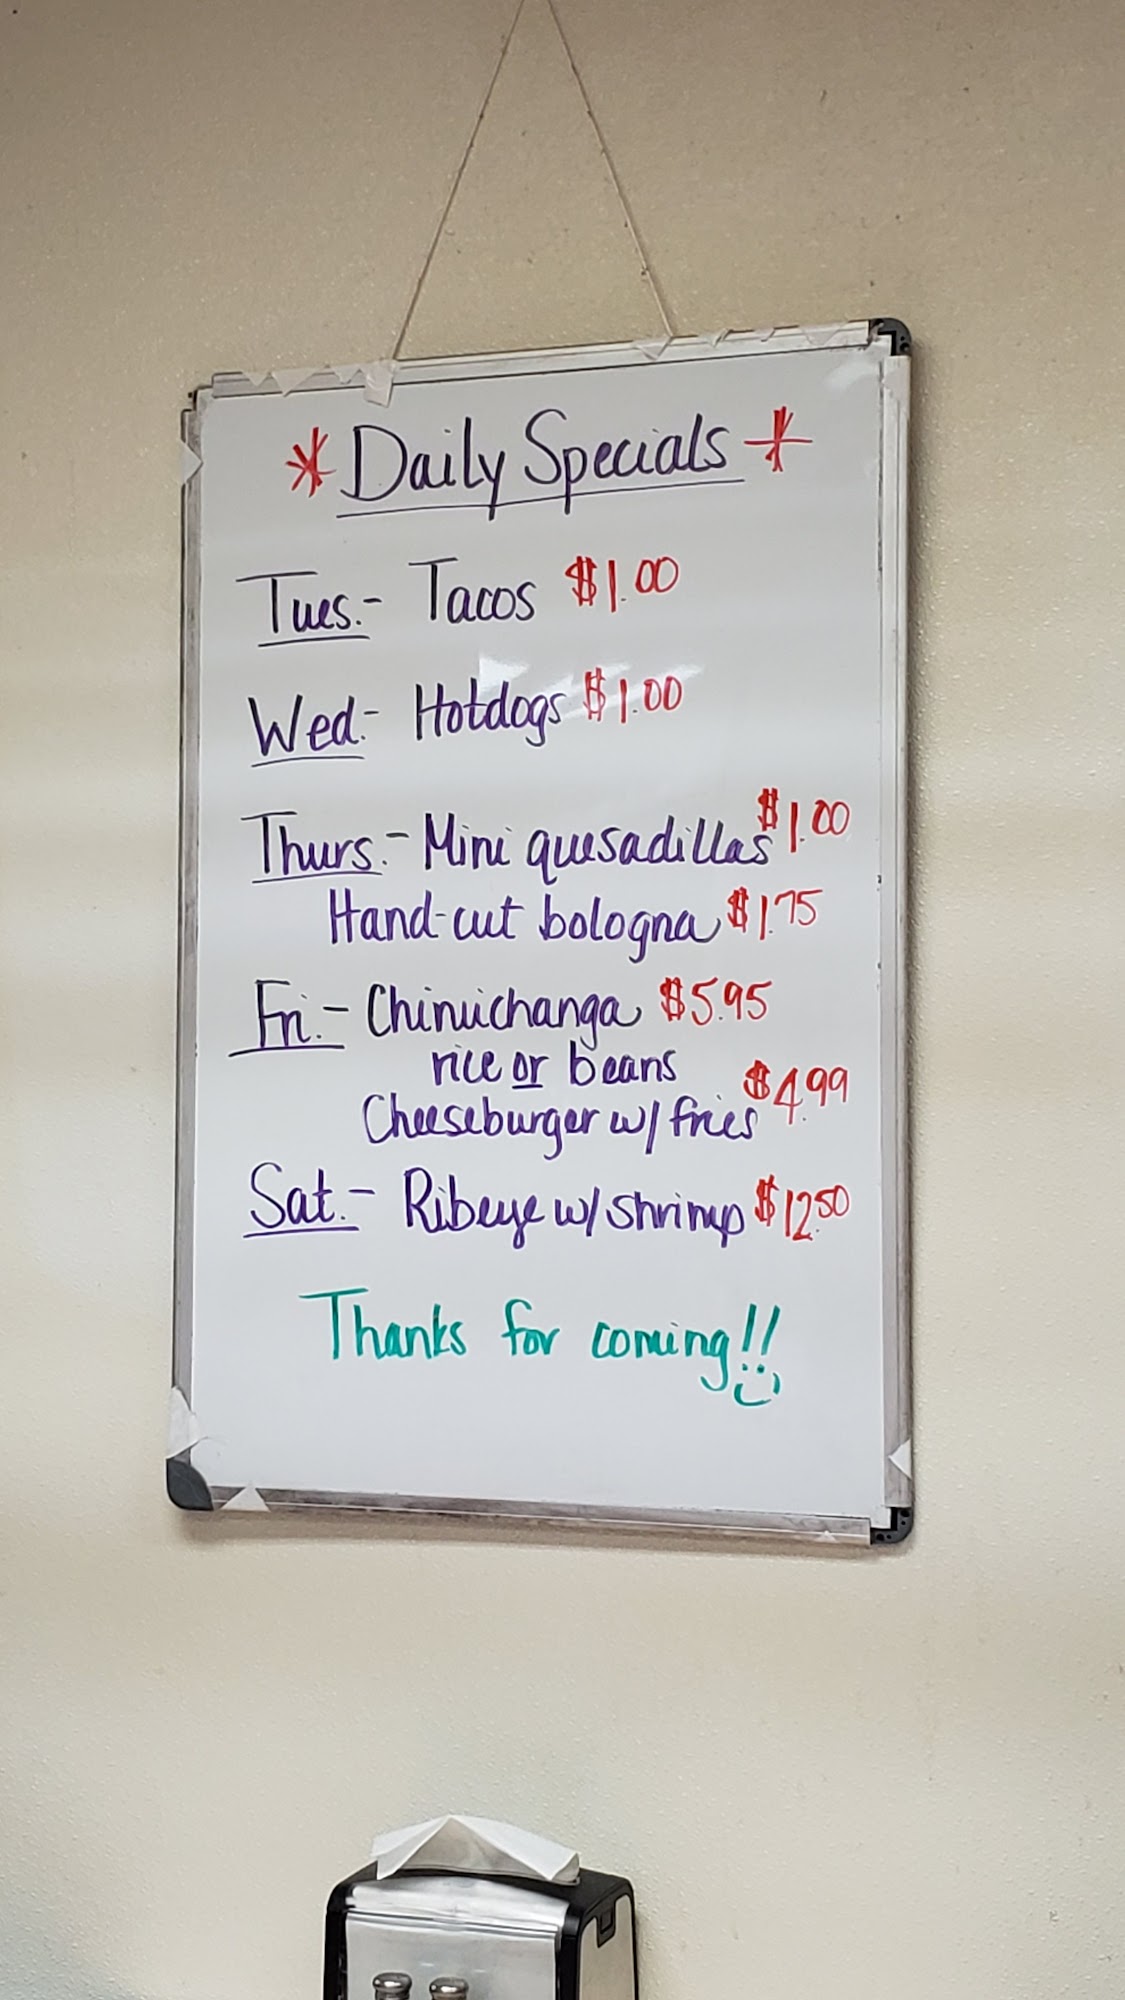 * Daily Specials *
Tues.- Tacos $1.00
Wed.- Hotdogs $1.00
Thurs.- Mini quesadillas $1.00
Hand-cut bologna $1.75
Fri.- Chimichanga $5.95
rice or beans
Cheeseburger w/ fries $4.99
Sat.- Ribeye w/ shrimp $12.50
Thanks for coming!!